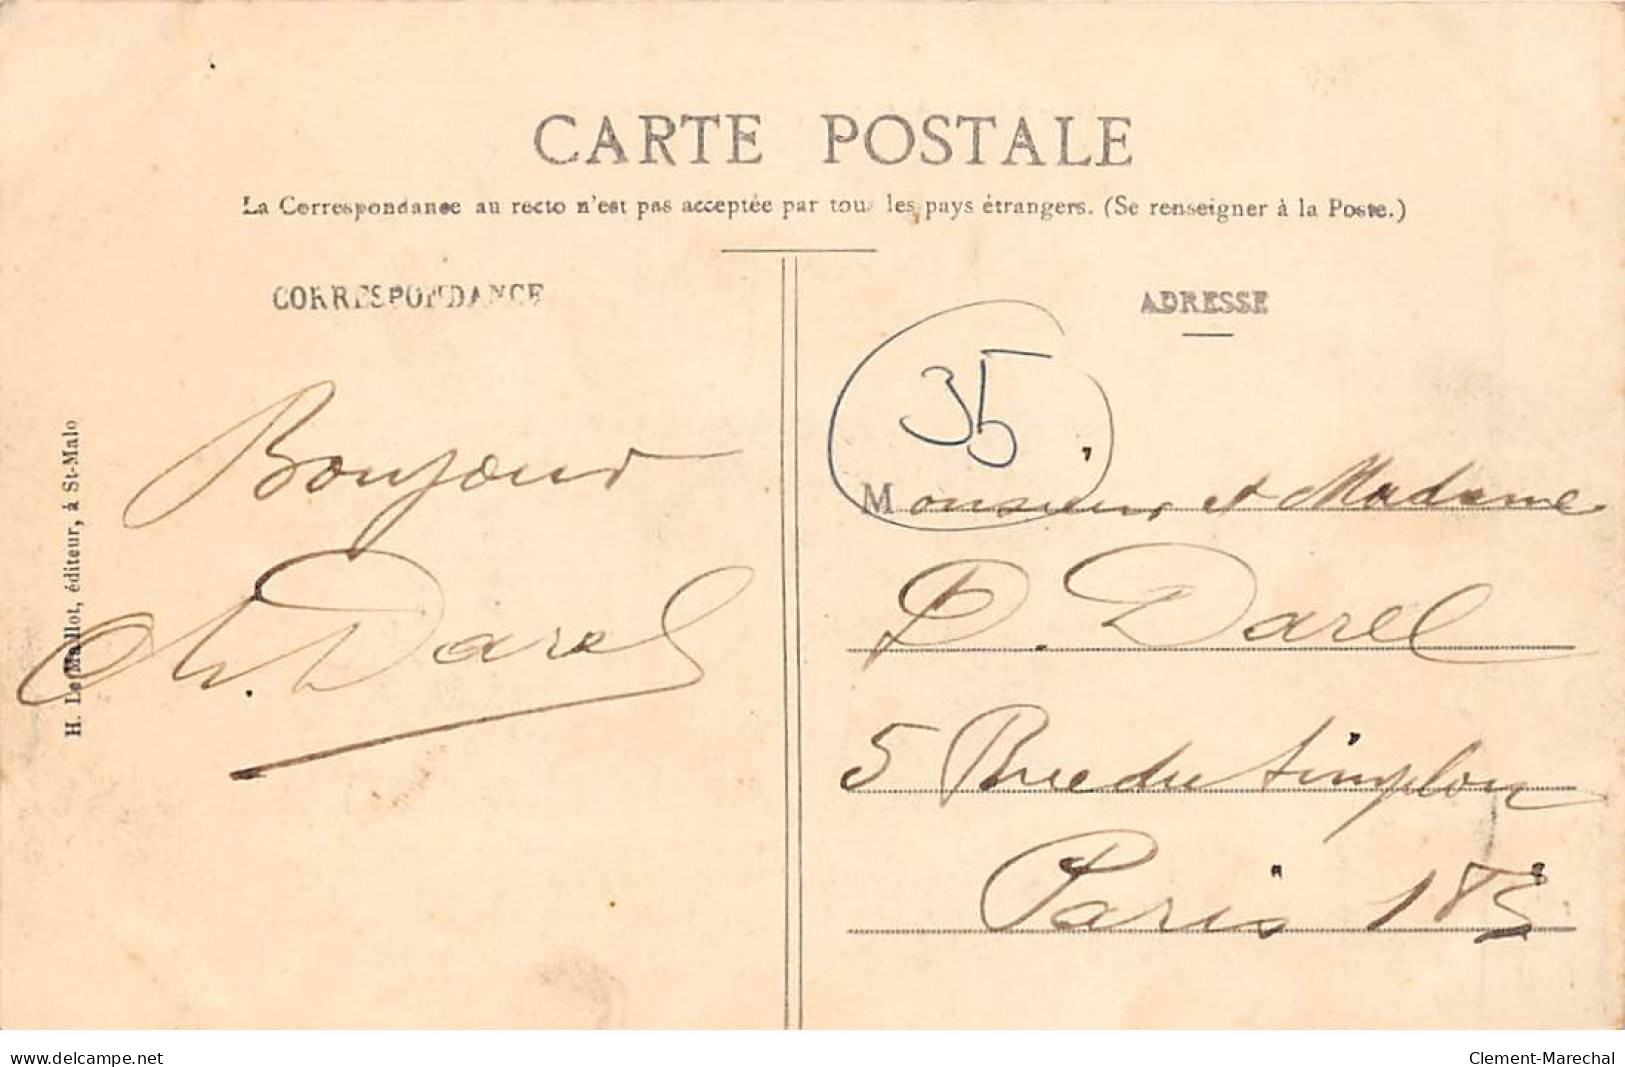 CARTE POSTALE
La Correspondance au recto n'est pas acceptée par tous les pays étrangers. (Se renseigner à la Poste.)
CORRESPONDANCE
ADRESSE
35
Bonjour
Ch. Darel
H. Le Maillot, éditeur, à St-Malo
Monsieur et Madame
D. Darel
5 Rue du Simplon
Paris 18e
www.delcampe.net
Clement-Marechal